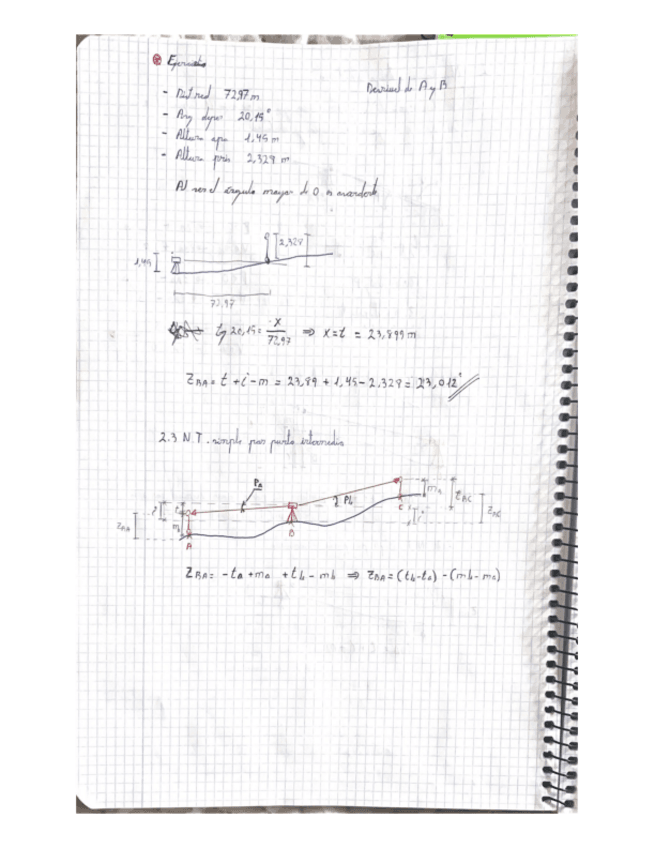 Ejercicio
Desnivel de A y B
- Dist red 72,97 m
- Ang depr 20,15°
- Altura apa 1,45 m
- Altura pris 2,328 m
Al ser el ángulo mayor de 0 es ascendente
2,328
1,45
72,97
tg 20,15 = x / 72,97 ⇒ x = t = 23,899 m
Z BA = t + i - m = 23,89 + 1,45 - 2,328 = 23,012
2.3 N.T. simple por punto intermedio
PA
Pb
tBC
ZBC
ZBA
A
C
Z BA = -ta + ma + tb - mb ⇒ ZBA = (tb-ta) - (mb-ma)